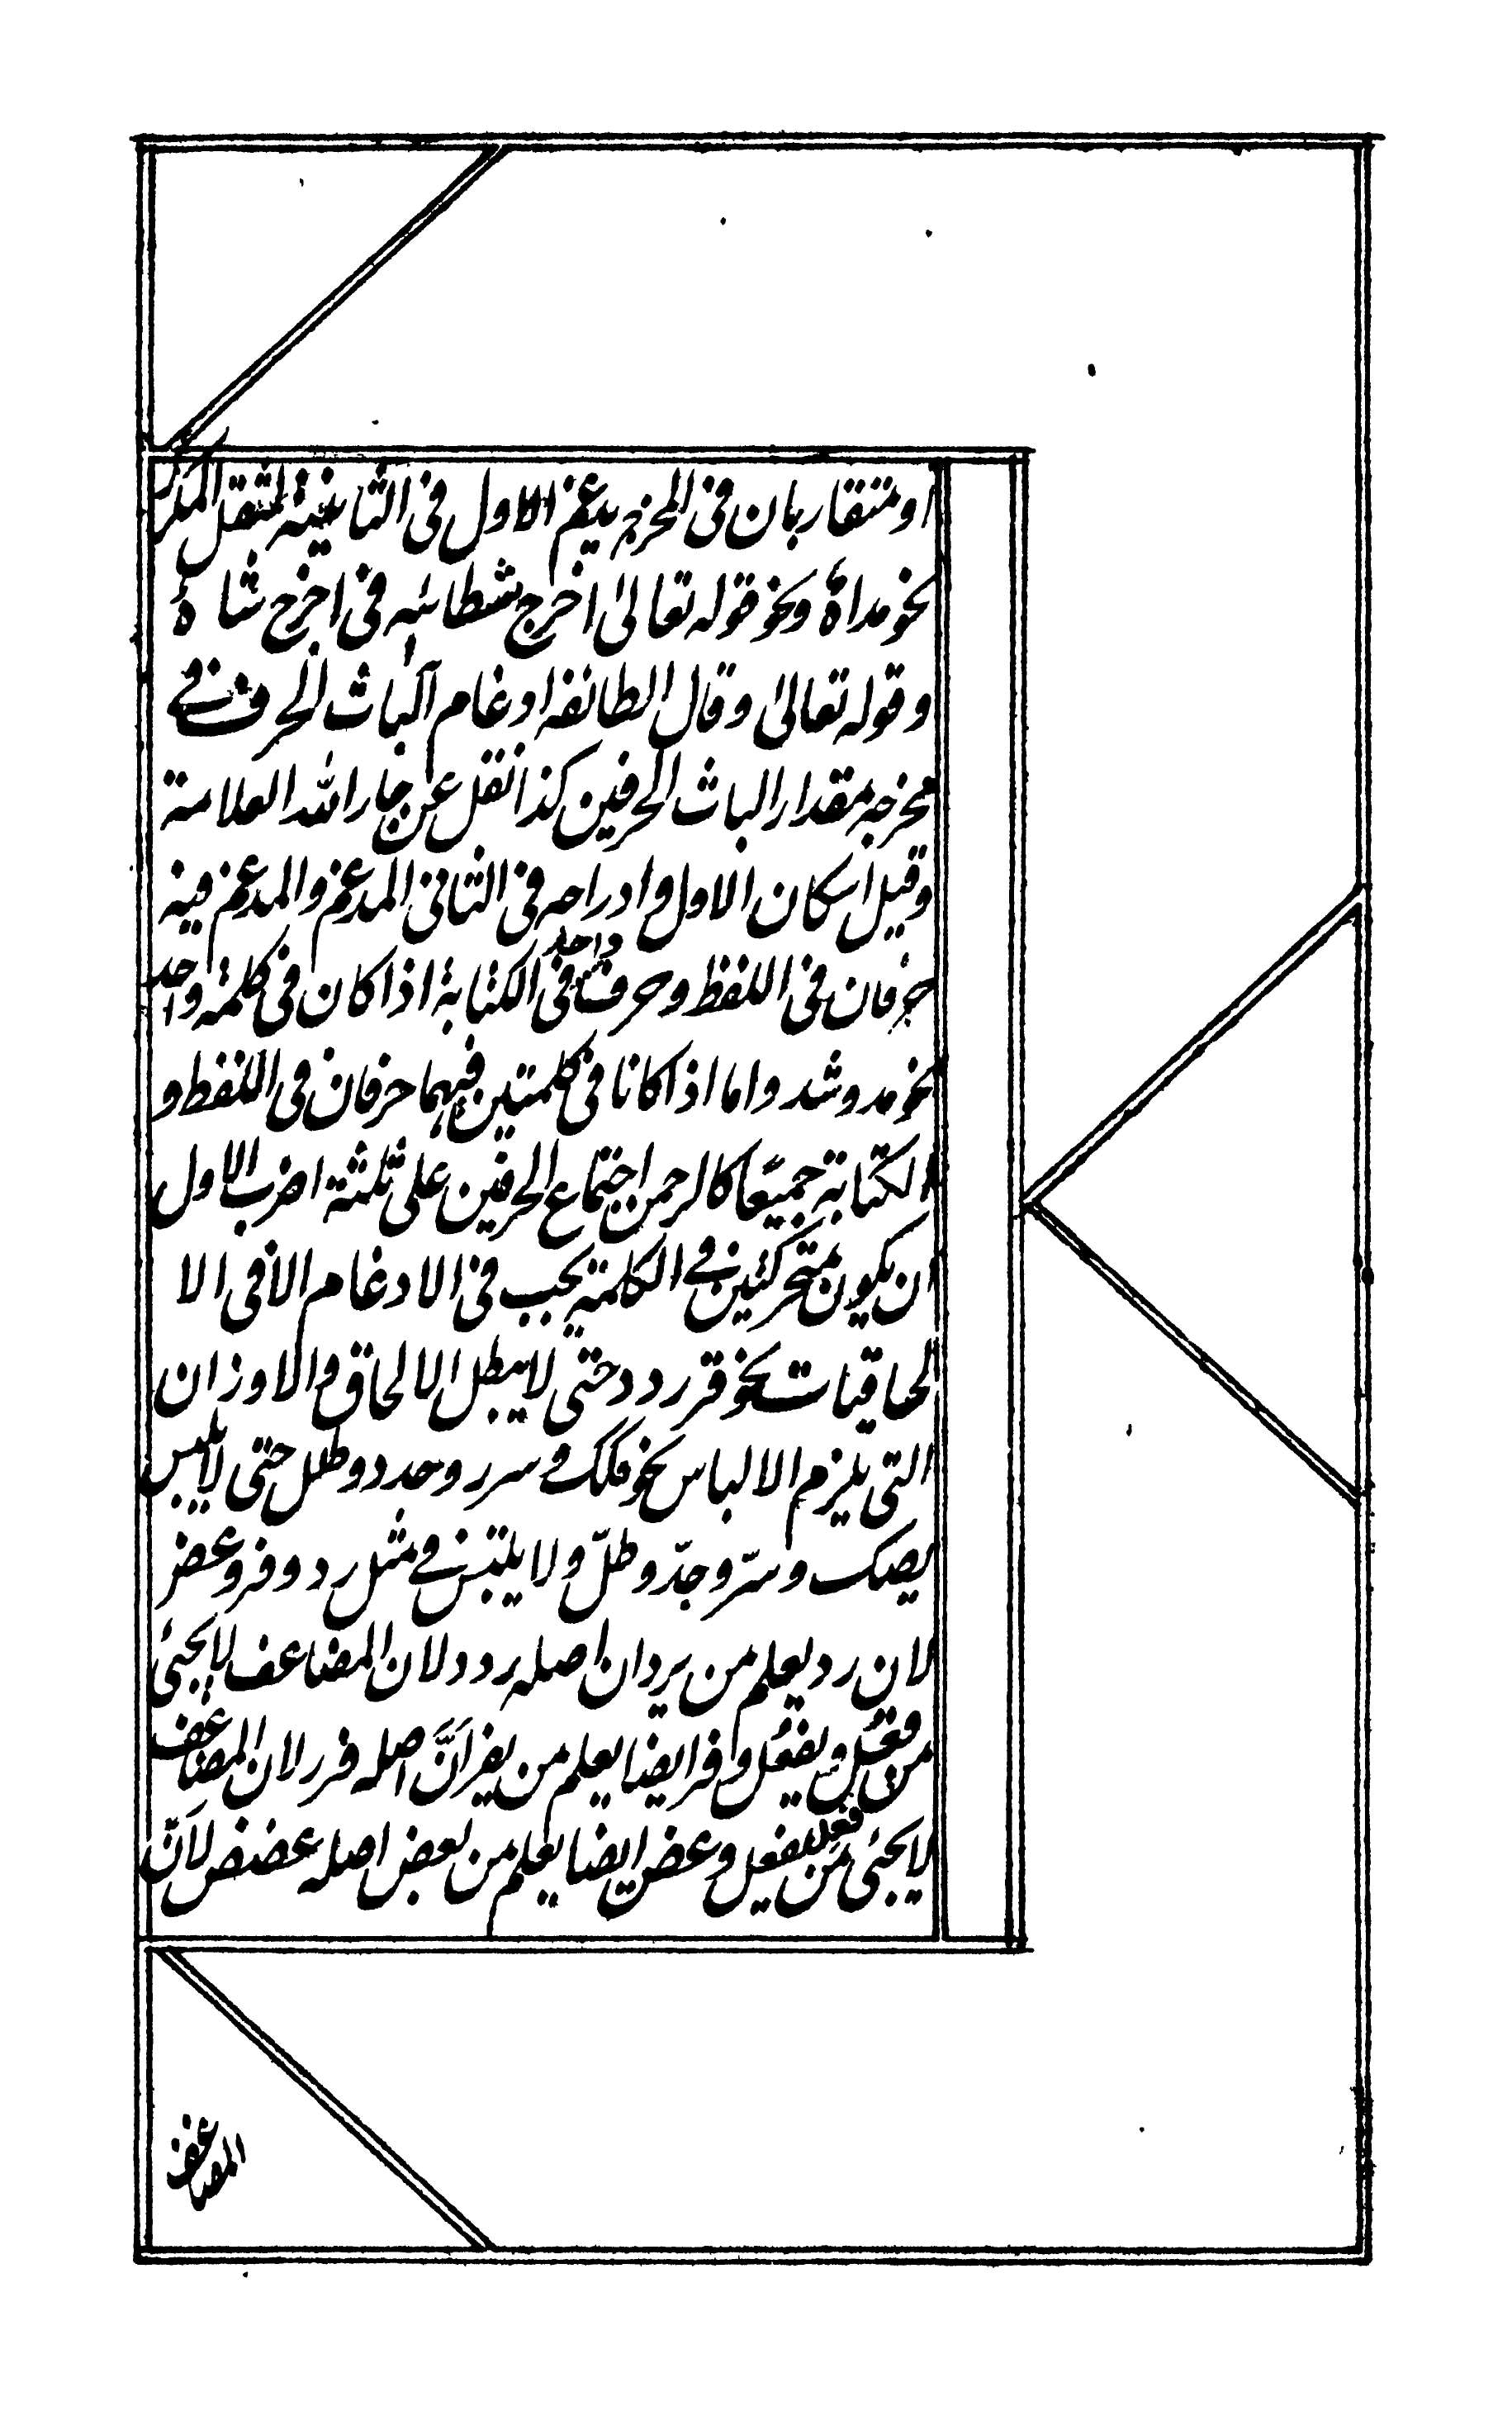 او متقاربان فى المخرج يدغم الاول فى الثانية لثقل المكرر
نحو مدا ة ونحو قوله تعالىٰ اخرج شطائه فى اخرج شا ة
و قوله تعالىٰ و قال الطائفه ادغام الباث الحرف فے
مخرجه مقدار الباث الحرفين كذا نقل عن جار الله العلامة
وقيل اسكان الاول و ادراجه فى الثانى المدغم والمدغم فيه
حرفان فى اللفظ و حرف واحد فى الكتابة اذا كان فى كلمة واحد
نحو مد و شد و اما اذا كانا فى كلمتين فيهما حرفان فى اللفظ و
الكتابة جميعًا كالرحمن اجتماع الحرفين على ثلثة اضرب الاول
ان يكون متحركتين فے الكلمة يجب فى الادغام الا فى الا
لحاقيات نحو قردد حتى لا يبطل الالحاق و الاوزان
التى يلزم الالباس نحو فكك و سرر و جدد و طلل حتى لا يلبس
بصكّ و سرّ و جدّ و طلّ ولا يلتبس فے مثل رد و فر و عض
لان رد يعلم من يرد ان اصله ردد لان المضاعف لا يجئ
من فعُل يفعُل و فر ايضا يعلم من يفر اَنَّ اصله فرر لان المضاعف
لا يجئ من فعل يفعل و عض ايضا يعلم من يعض اصله عضض لاَنَّ
المضاعف